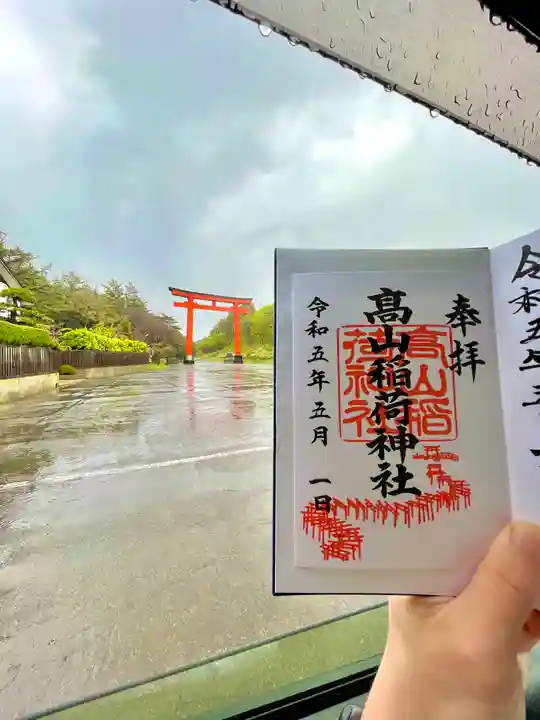 奉拝
高山稲荷神社
高山稲
荷神社
令和五年五月 一日
令和五年五